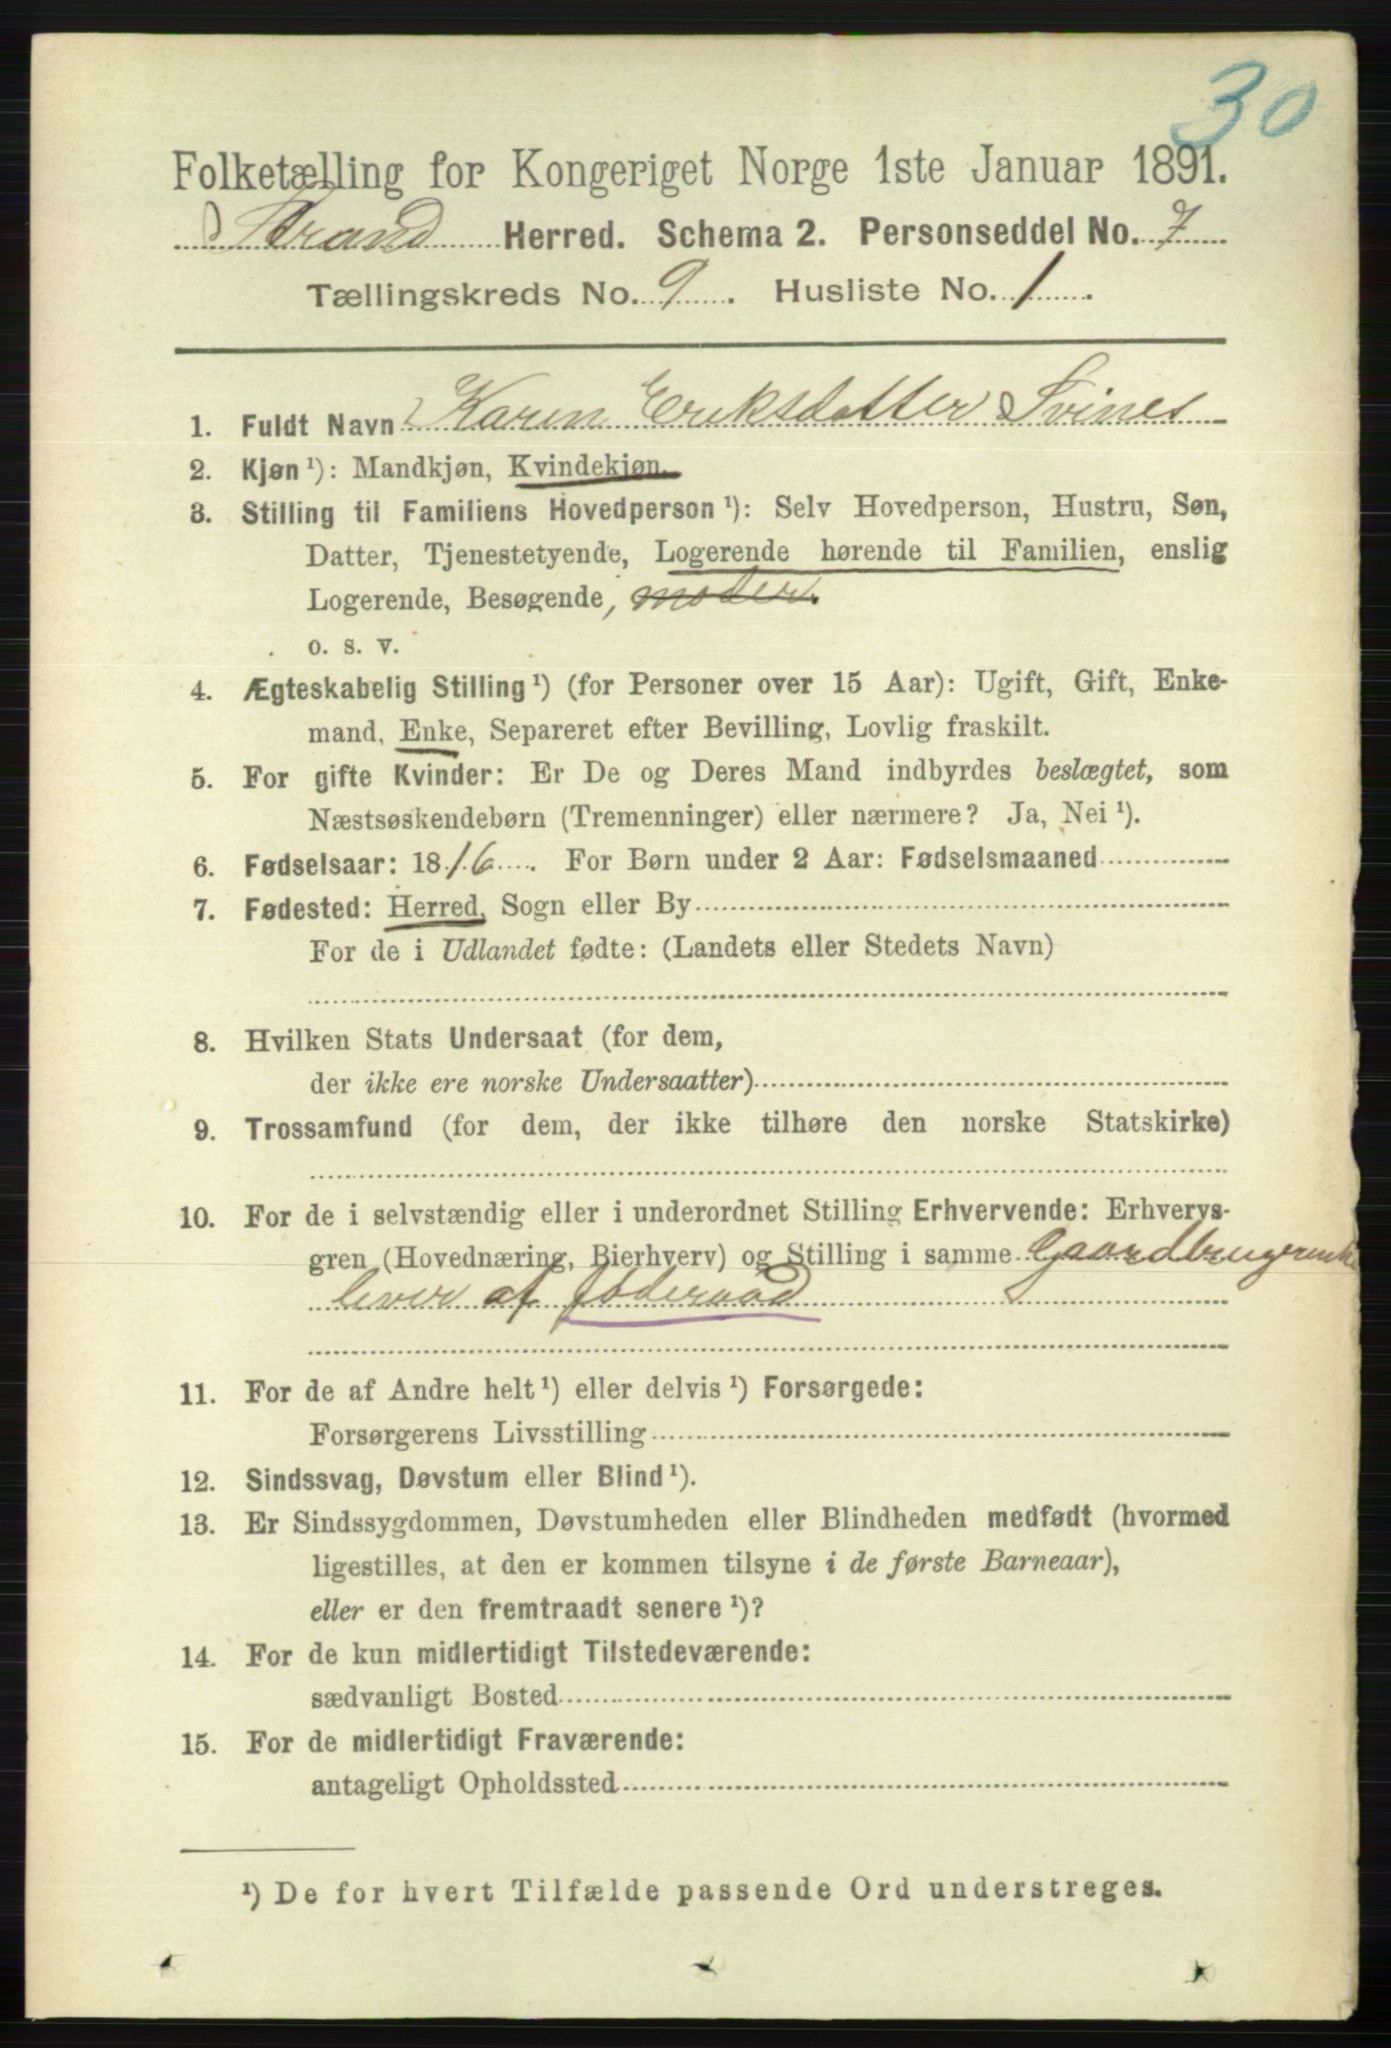 30
Folketælling for Kongeriget Norge 1ste Januar 1891.
Strand Herred. Schema 2. Personseddel No. 7
Tællingskreds No. 9. Husliste No. 1.
1. Fuldt Navn Karen Eriksdatter Svines
2. Kjøn ¹): Mandkjøn, Kvindekjøn.
3. Stilling til Familiens Hovedperson ¹): Selv Hovedperson, Hustru, Søn,
Datter, Tjenestetyende, Logerende hørende til Familien, enslig
Logerende, Besøgende, moder.
o. s. v.
4. Ægteskabelig Stilling ¹) (for Personer over 15 Aar): Ugift, Gift, Enke-
mand, Enke, Separeret efter Bevilling, Lovlig fraskilt.
5. For gifte Kvinder: Er De og Deres Mand indbyrdes beslægtet, som
Næstsøskendebørn (Tremenninger) eller nærmere? Ja, Nei ¹).
6. Fødselsaar: 1816. For Børn under 2 Aar: Fødselsmaaned
7. Fødested: Herred, Sogn eller By
For de i Udlandet fødte: (Landets eller Stedets Navn)
8. Hvilken Stats Undersaat (for dem,
der ikke ere norske Undersaatter)
9. Trossamfund (for dem, der ikke tilhøre den norske Statskirke)
10. For de i selvstændig eller i underordnet Stilling Erhvervende: Erhvervs-
gren (Hovednæring, Bierhverv) og Stilling i samme Gaardbrugerenke
lever af føderaad
11. For de af Andre helt ¹) eller delvis ¹) Forsørgede:
Forsørgerens Livsstilling
12. Sindssvag, Døvstum eller Blind ¹).
13. Er Sindssygdommen, Døvstumheden eller Blindheden medfødt (hvormed
ligestilles, at den er kommen tilsyne i de første Barneaar),
eller er den fremtraadt senere ¹)?
14. For de kun midlertidigt Tilstedeværende:
sædvanligt Bosted
15. For de midlertidigt Fraværende:
antageligt Opholdssted
¹) De for hvert Tilfælde passende Ord understreges.